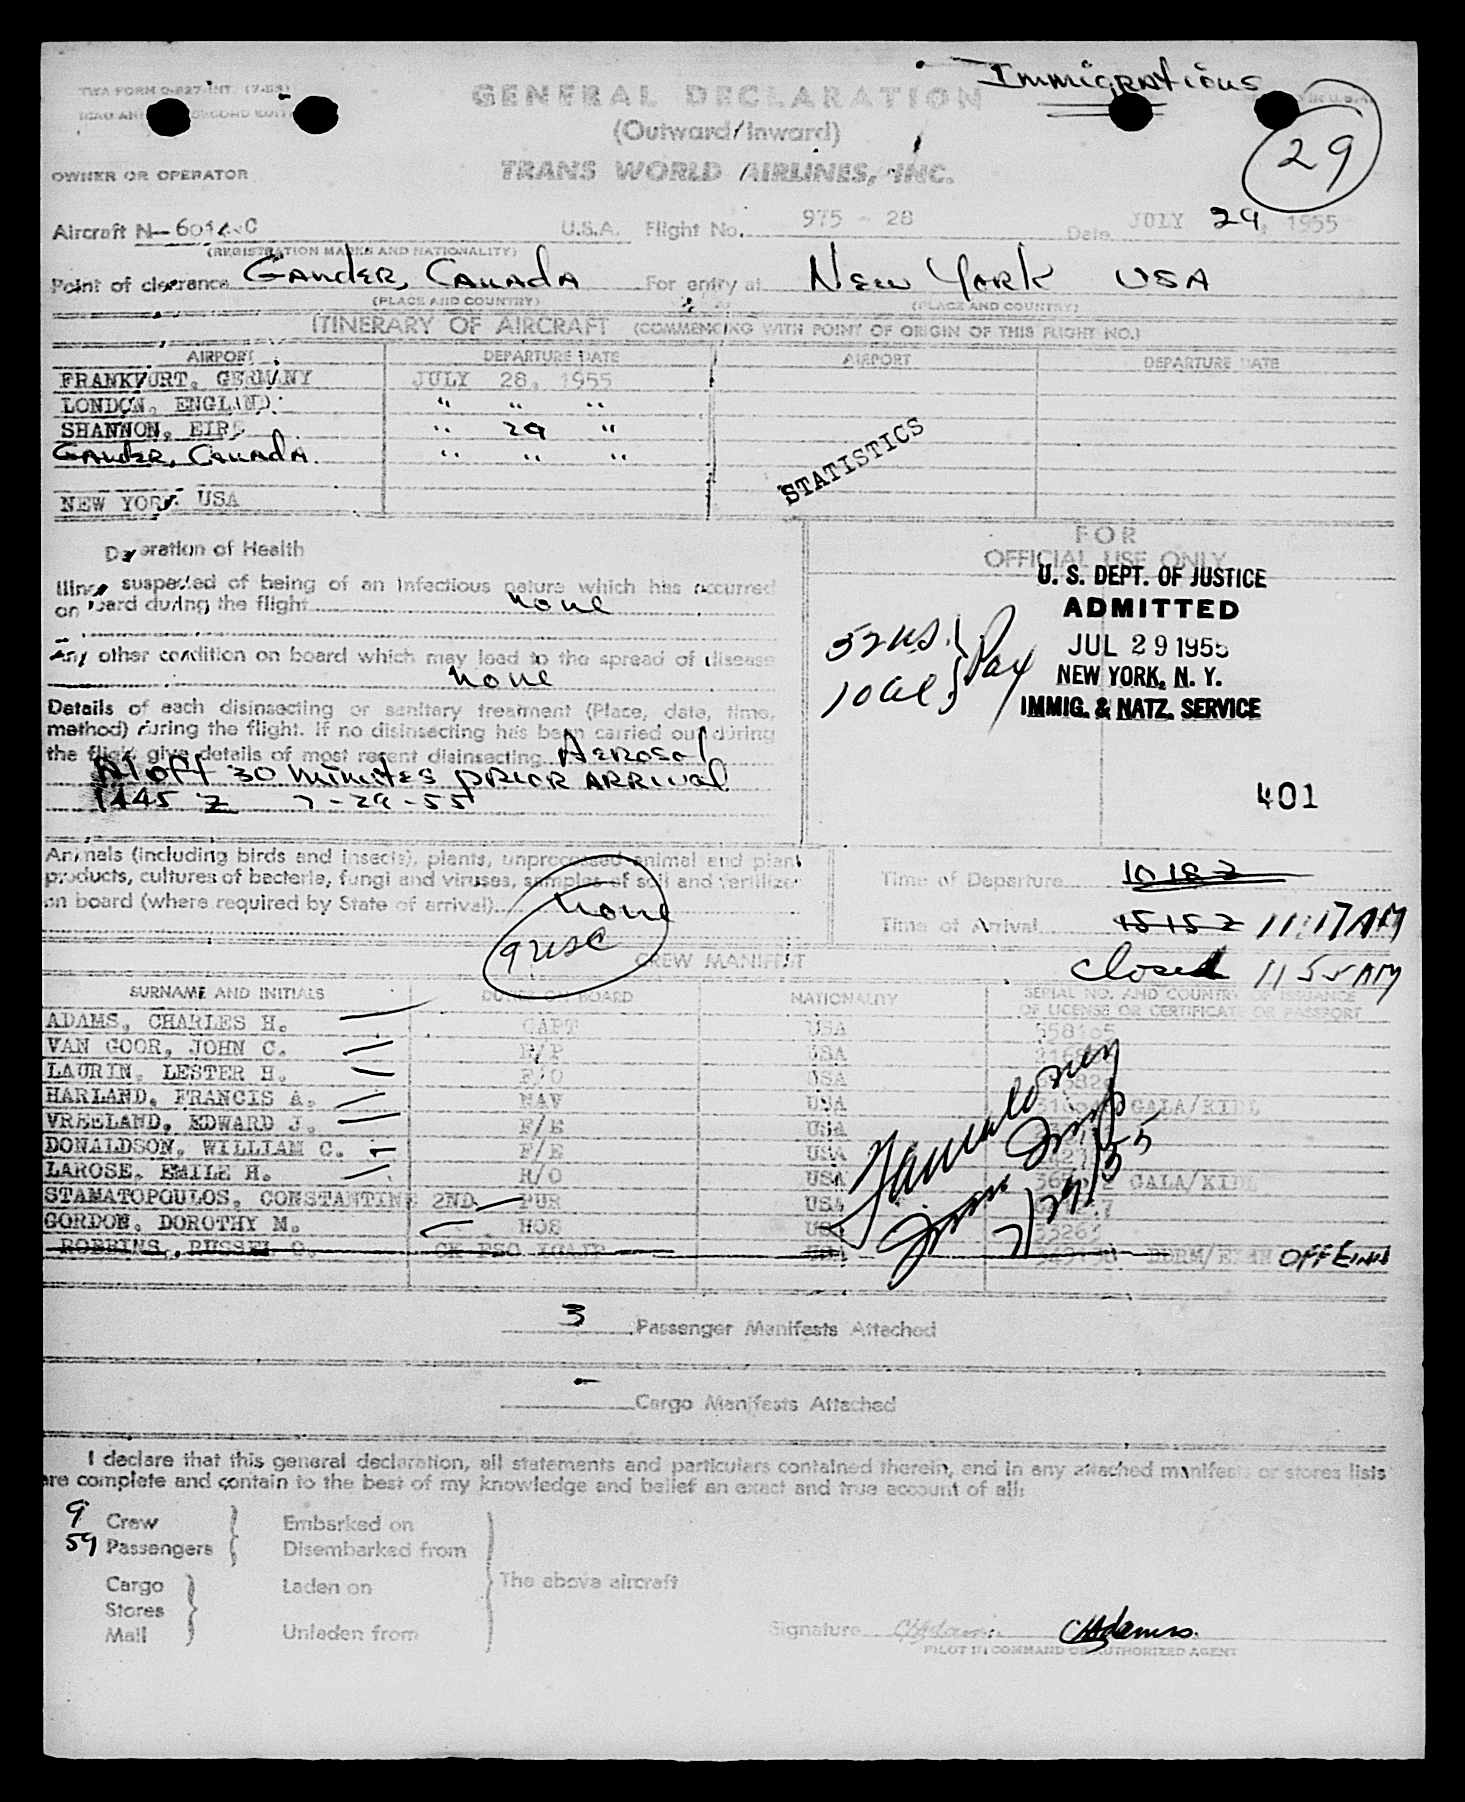 Immigrations
TWA FORM O-827-INT. (7-53)
GENERAL DECLARATION
(Outward/Inward)
29
OWNER OR OPERATOR
TRANS WORLD AIRLINES, INC.
Aircraft N- C U.S.A. Flight No. 975 - 28 Date JULY 29, 1955
(REGISTRATION MARKS AND NATIONALITY)
Point of clearance GANDER, CANADA For entry at NEW YORK USA
(PLACE AND COUNTRY) (PLACE AND COUNTRY)
ITINERARY OF AIRCRAFT (COMMENCING WITH POINT OF ORIGIN OF THIS FLIGHT NO.)
AIRPORT DEPARTURE DATE AIRPORT DEPARTURE DATE
FRANKFURT, GERMANY JULY 28, 1955
LONDON, ENGLAND " " "
SHANNON, EIRE " 29 "
GANDER, CANADA " " "
STATISTICS
NEW YORK USA
Declaration of Health
Illness suspected of being of an infectious nature which has occurred
on board during the flight none
Any other condition on board which may lead to the spread of disease
none
Details of each disinsecting or sanitary treatment (Place, date, time,
method) during the flight. If no disinsecting has been carried out during
the flight give details of most recent disinsecting Aerosol
Aloft 30 minutes PRIOR ARRIVAL
1445 Z 7-29-55
FOR
OFFICIAL USE ONLY
U. S. DEPT. OF JUSTICE
ADMITTED
JUL 29 1955
NEW YORK, N. Y.
IMMIG. & NATZ. SERVICE
52 US. } Pax
10 al }
401
Animals (including birds and insects), plants, unprocessed animal and plant
products, cultures of bacteria, fungi and viruses, samples of soil and fertilizer
on board (where required by State of arrival) none
9 usc
Time of Departure 1018 Z
Time of Arrival 1515 Z 11:17 AM
closed 11 55 AM
CREW MANIFEST
SURNAME AND INITIALS DUTIES ON BOARD NATIONALITY SERIAL NO. AND COUNTRY OF ISSUANCE
OF LICENSE OR CERTIFICATE OR PASSPORT
ADAMS, CHARLES H. CAPT USA
VAN GOOR, JOHN C. F/P USA
LAURIN, LESTER H. F/O USA
HARLAND, FRANCIS A. NAV USA GALA/KIDL
VREELAND, EDWARD J. F/E USA
DONALDSON, WILLIAM C. F/E USA
LAROSE, EMILE H. R/O USA GALA/KIDL
STAMATOPOULOS, CONSTANTINE 2ND PUR USA
GORDON, DOROTHY M. HOS USA
ROBBINS, RUSSEL O. USA
7/29/55
3 Passenger Manifests Attached
- Cargo Manifests Attached
I declare that this general declaration, all statements and particulars contained therein, and in any attached manifests or stores lists
are complete and contain to the best of my knowledge and belief an exact and true account of all:
9 Crew Embarked on
59 Passengers Disembarked from
The above aircraft
Cargo Laden on
Stores
Mail Unladen from
Signature CHAdams. CHAdams.
PILOT IN COMMAND OR AUTHORIZED AGENT